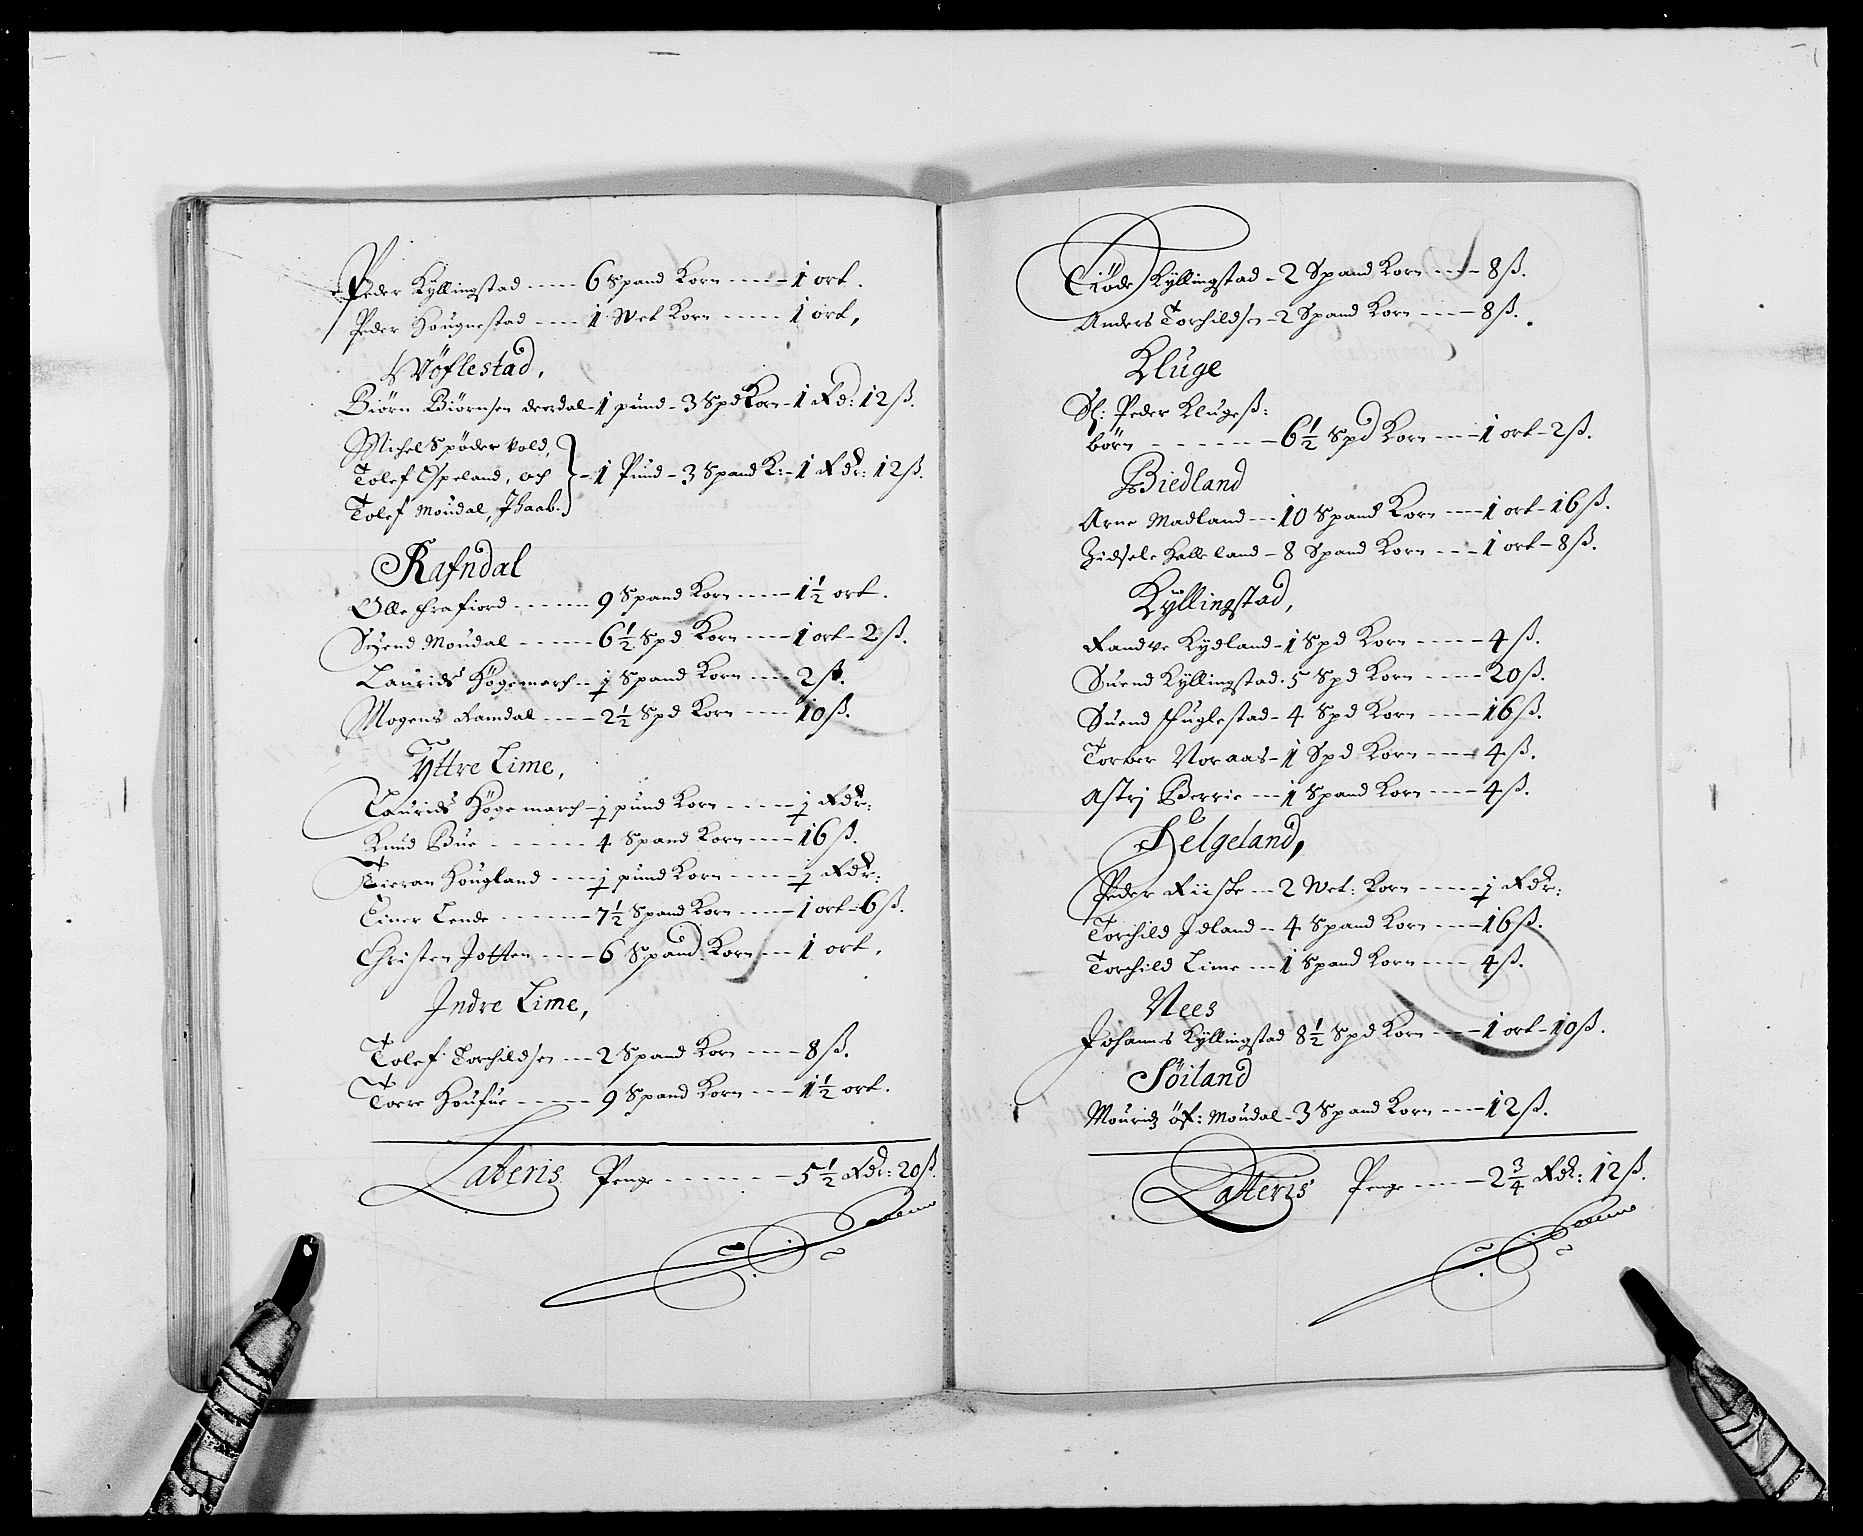 Peder Kyllingstad ---- 6 Spand Korn ---- 1 ort.
Peder Hougnestad ---- 1 Wet Korn ---- 1 ort,
Wöflestad,
Biörn Biörnsen deerdal - 1 pund - 3 Spd Korn - 1 Rd: 12 ß.
Michel Spöder vold,
Tolef Espeland, och } - 1 Pund - 3 Spand K: - 1 Rdr: 12 ß.
Tolef Moudal, Jhaab.
Rafndal
Olle frafiord ---- 9 Spand Korn ---- 1½ ort.
Svend Moudal ---- 6½ Spd Korn ---- 1 ort - 2 ß.
Laurids Högemarch -- ½ Spand Korn ---- 2 ß.
Mogens Ramdal ---- 2½ Spd Korn ---- 10 ß.
Yttre Lime,
Laurids Högemarch - ½ pund Korn ---- ½ Rdr:
Knud Bue ---- 4 Spand Korn ---- 16 ß.
Tieran Hougland ---- ½ pund Korn ---- ½ Rdr:
Einer Lende ---- 7½ Spand Korn ---- 1 ort - 6 ß.
Christen Jotten ---- 6 Spand Korn --- 1 ort,
Indre Lime,
Tolef Torchildsen --- 2 Spand Korn --- 8 ß.
Toere Houfue ---- 9 Spand Korn --- 1½ ort.
Lateris Penge ---- 5½ Rdr: 20 ß
Tiöde Kyllingstad - 2 Spand Korn --- 8 ß.
Anders Torchildsen - 2 Spand Korn ---- 8 ß.
Kluge
Sl: Peder Klugeß:
börn ---- 6½ Spd Korn --- 1 ort - 2 ß.
Biedland
Arne Madland --- 10 Spand Korn --- 1 ort - 16 ß.
Zidsele Helleland - 8 Spand Korn --- 1 ort - 8 ß.
Kyllingstad,
Randve Kydland - 1 Spd Korn ---- 4 ß.
Suend Kyllingstad. 5 Spd Korn ---- 20 ß.
Suend Fuglestad - 4 Spd Korn ---- 16 ß.
Torber Noraas - 1 Spd Korn ---- 4 ß.
Astrj Berrie --- 1 Spand Korn ---- 4 ß.
Helgeland,
Peder Riiske --- 2 Wet: Korn ---- ½ Rdr:
Torchild Idland -- 4 Spand Korn --- 16 ß.
Torchild Lime --- 1 Spand Korn ---- 4 ß.
Nees
Johannes Kyllingstad 8½ Spd Korn --- 1 ort - 10 ß.
Söiland
Mouridz öf: Moudal - 3 Spand Korn --- 12 ß.
Lateris Penge ---- 2¾ Rdr: 12 ß.